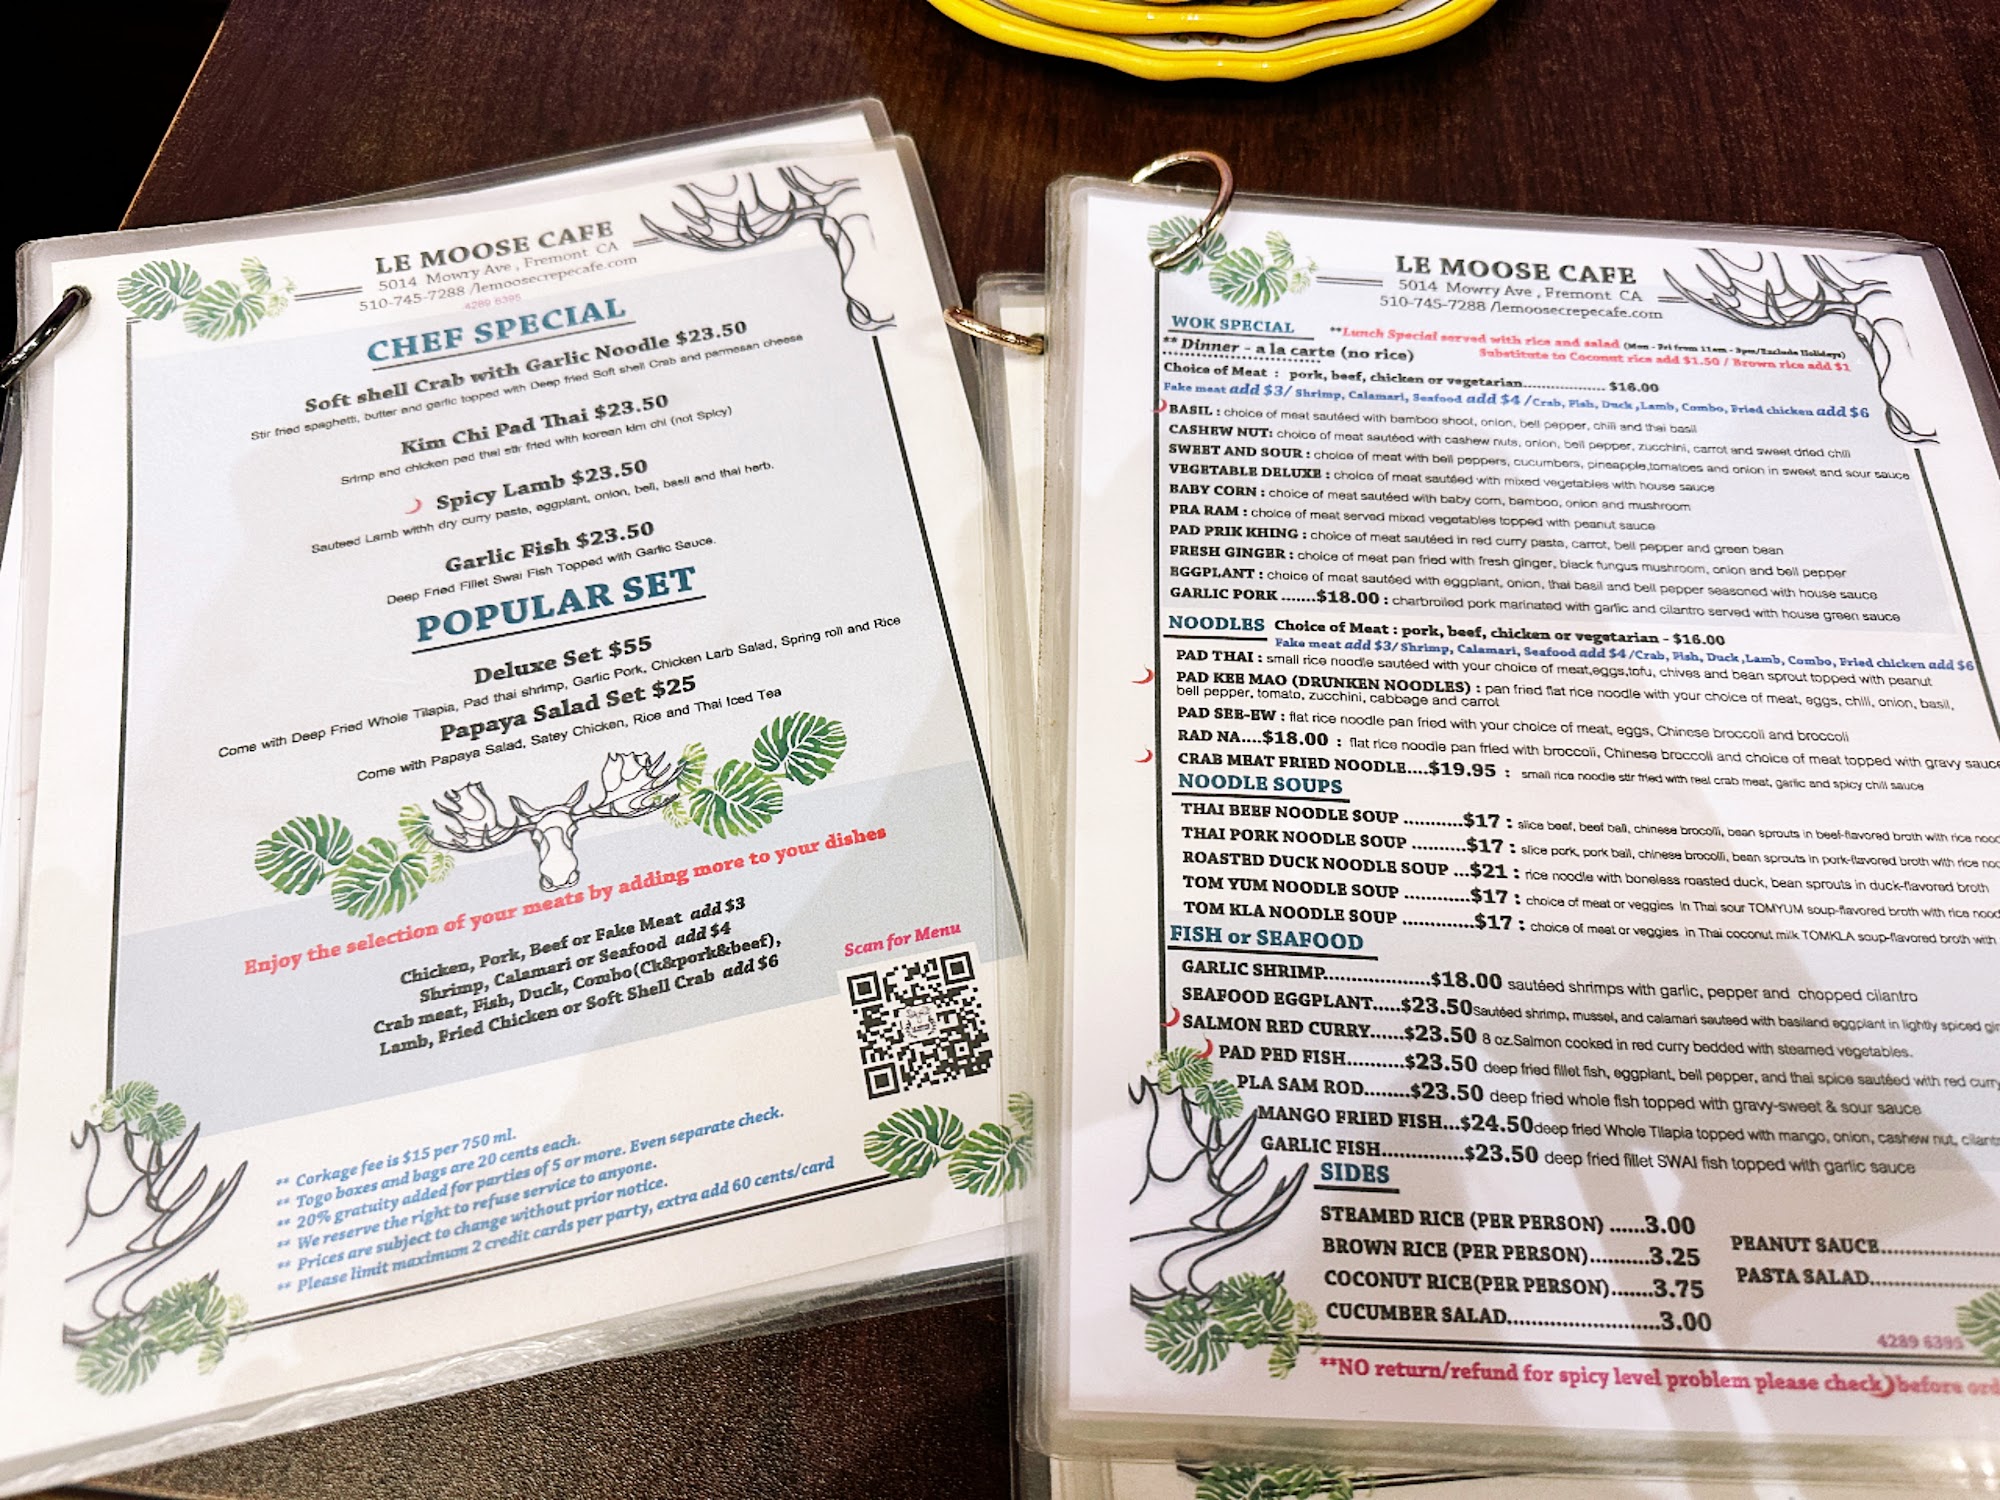 LE MOOSE CAFE
5014 Mowry Ave , Fremont CA
510-745-7288 /lemoosecrepecafe.com
4289 6395
CHEF SPECIAL
Soft shell Crab with Garlic Noodle $23.50
Stir fried spaghetti, butter and garlic topped with Deep fried Soft shell Crab and parmesan cheese
Kim Chi Pad Thai $23.50
Srimp and chicken pad thai stir fried with korean kim chi (not Spicy)
Spicy Lamb $23.50
Sauteed Lamb withh dry curry paste, eggplant, onion, bell, basil and thai herb.
Garlic Fish $23.50
Deep Fried Fillet Swai Fish Topped with Garlic Sauce.
POPULAR SET
Deluxe Set $55
Come with Deep Fried Whole Tilapia, Pad thai shrimp, Garlic Pork, Chicken Larb Salad, Spring roll and Rice
Papaya Salad Set $25
Come with Papaya Salad, Satey Chicken, Rice and Thai Iced Tea
Enjoy the selection of your meats by adding more to your dishes
Chicken, Pork, Beef or Fake Meat add $3
Shrimp, Calamari or Seafood add $4
Crab meat, Fish, Duck, Combo(Ck&pork&beef),
Lamb, Fried Chicken or Soft Shell Crab add $6
Scan for Menu
** Corkage fee is $15 per 750 ml.
** Togo boxes and bags are 20 cents each.
** 20% gratuity added for parties of 5 or more. Even separate check.
** We reserve the right to refuse service to anyone.
** Prices are subject to change without prior notice.
** Please limit maximum 2 credit cards per party, extra add 60 cents/card
LE MOOSE CAFE
5014 Mowry Ave , Fremont CA
510-745-7288 /lemoosecrepecafe.com
WOK SPECIAL
**Lunch Special served with rice and salad (Mon - Fri from 11am - 3pm/Exclude Holidays)
** Dinner - a la carte (no rice)
Substitute to Coconut rice add $1.50 / Brown rice add $1
Choice of Meat : pork, beef, chicken or vegetarian.................. $16.00
Fake meat add $3/ Shrimp, Calamari, Seafood add $4 /Crab, Fish, Duck ,Lamb, Combo, Fried chicken add $6
BASIL : choice of meat sautéed with bamboo shoot, onion, bell pepper, chili and thai basil
CASHEW NUT: choice of meat sautéed with cashew nuts, onion, bell pepper, zucchini, carrot and sweet dried chili
SWEET AND SOUR : choice of meat with bell peppers, cucumbers, pineapple,tomatoes and onion in sweet and sour sauce
VEGETABLE DELUXE : choice of meat sautéed with mixed vegetables with house sauce
BABY CORN : choice of meat sautéed with baby corn, bamboo, onion and mushroom
PRA RAM : choice of meat served mixed vegetables topped with peanut sauce
PAD PRIK KHING : choice of meat sautéed in red curry paste, carrot, bell pepper and green bean
FRESH GINGER : choice of meat pan fried with fresh ginger, black fungus mushroom, onion and bell pepper
EGGPLANT : choice of meat sautéed with eggplant, onion, thai basil and bell pepper seasoned with house sauce
GARLIC PORK .......$18.00 : charbroiled pork marinated with garlic and cilantro served with house green sauce
NOODLES Choice of Meat : pork, beef, chicken or vegetarian - $16.00
Fake meat add $3/ Shrimp, Calamari, Seafood add $4 /Crab, Fish, Duck ,Lamb, Combo, Fried chicken add $6
PAD THAI : small rice noodle sautéed with your choice of meat,eggs,tofu, chives and bean sprout topped with peanut
PAD KEE MAO (DRUNKEN NOODLES) : pan fried flat rice noodle with your choice of meat, eggs, chili, onion, basil,
bell pepper, tomato, zucchini, cabbage and carrot
PAD SEE-EW : flat rice noodle pan fried with your choice of meat, eggs, Chinese broccoli and broccoli
RAD NA....$18.00 : flat rice noodle pan fried with broccoli, Chinese broccoli and choice of meat topped with gravy sauce
CRAB MEAT FRIED NOODLE....$19.95 : small rice noodle stir fried with real crab meat, garlic and spicy chili sauce
NOODLE SOUPS
THAI BEEF NOODLE SOUP ...........$17 : slice beef, beef ball, chinese brocolli, bean sprouts in beef-flavored broth with rice nood
THAI PORK NOODLE SOUP ..........$17 : slice pork, pork ball, chinese brocolli, bean sprouts in pork-flavored broth with rice noo
ROASTED DUCK NOODLE SOUP ...$21 : rice noodle with boneless roasted duck, bean sprouts in duck-flavored broth
TOM YUM NOODLE SOUP ............$17 : choice of meat or veggies in Thai sour TOMYUM soup-flavored broth with rice nood
TOM KLA NOODLE SOUP ............$17 : choice of meat or veggies in Thai coconut milk TOMKLA soup-flavored broth with
FISH or SEAFOOD
GARLIC SHRIMP...................$18.00 sautéed shrimps with garlic, pepper and chopped cilantro
SEAFOOD EGGPLANT.....$23.50Sautéed shrimp, mussel, and calamari sauteed with basiland eggplant in lightly spiced gin
SALMON RED CURRY......$23.50 8 oz.Salmon cooked in red curry bedded with steamed vegetables.
PAD PED FISH..........$23.50 deep fried fillet fish, eggplant, bell pepper, and thai spice sautéed with red curry
PLA SAM ROD........$23.50 deep fried whole fish topped with gravy-sweet & sour sauce
MANGO FRIED FISH...$24.50deep fried Whole Tilapia topped with mango, onion, cashew nut, cilant
GARLIC FISH..............$23.50 deep fried fillet SWAI fish topped with garlic sauce
SIDES
STEAMED RICE (PER PERSON) ......3.00
BROWN RICE (PER PERSON)..........3.25
COCONUT RICE(PER PERSON).......3.75
CUCUMBER SALAD..........................3.00
PEANUT SAUCE....................
PASTA SALAD......................
4289 6395
**NO return/refund for spicy level problem please check before ord